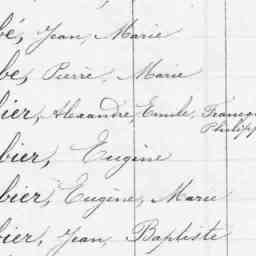 bé, Jean, Marie
be, Pierre, Marie
bier, Alexandre, Emile, Franço
Philipp
bier, Eugène
bier, Eugène, Marie
bier, Jean, Baptiste